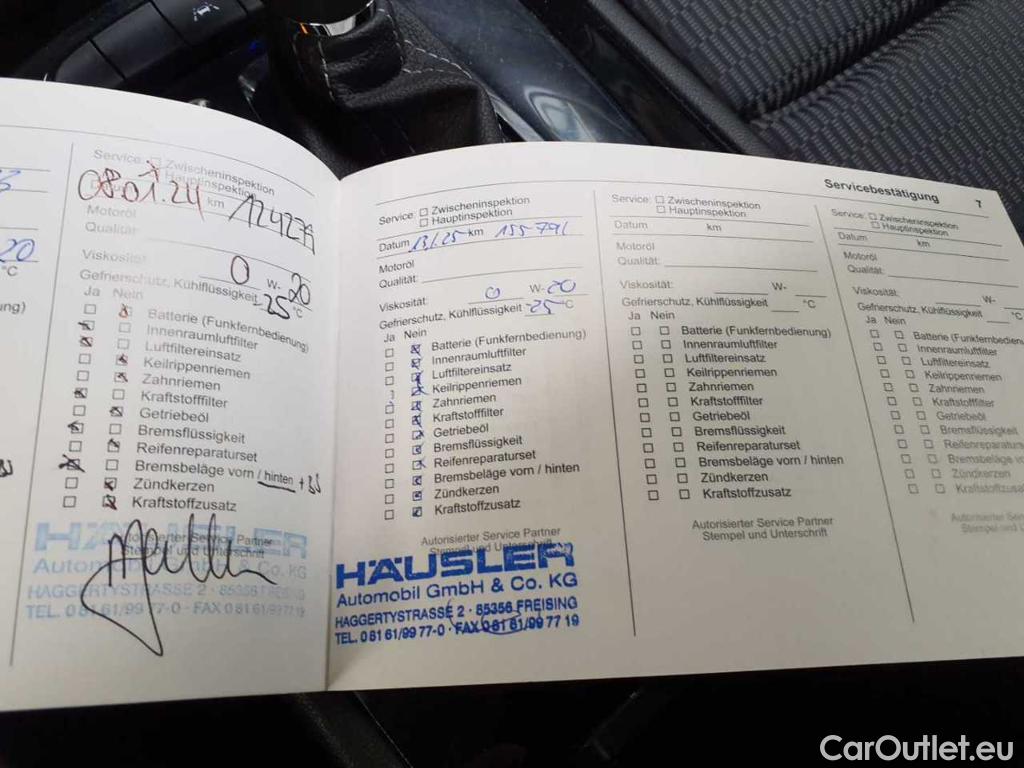 Servicebestätigung 7
20
°C
Service: Zwischeninspektion
Hauptinspektion
08.01.24 km
Motoröl
Qualität:
Viskosität: 0 W-20
Gefrierschutz, Kühlflüssigkeit -25 °C
Ja Nein
Batterie (Funkfernbedienung)
Innenraumluftfilter
Luftfiltereinsatz
Keilrippenriemen
Zahnriemen
Kraftstofffilter
Getriebeöl
Bremsflüssigkeit
Reifenreparaturset
Bremsbeläge vorn / hinten
Zündkerzen
Kraftstoffzusatz
Autorisierter Service Partner
Stempel und Unterschrift
HÄUSLER
Automobil GmbH & Co. KG
HAGGERTYSTRASSE 2 · 85356 FREISING
TEL. 0 81 61/99 77-0 · FAX 0 81 61/99 77 19
Service: Zwischeninspektion
Hauptinspektion
Datum km 155791
Motoröl
Qualität:
Viskosität: 0 W-20
Gefrierschutz, Kühlflüssigkeit -25 °C
Ja Nein
Batterie (Funkfernbedienung)
Innenraumluftfilter
Luftfiltereinsatz
Keilrippenriemen
Zahnriemen
Kraftstofffilter
Getriebeöl
Bremsflüssigkeit
Reifenreparaturset
Bremsbeläge vorn / hinten
Zündkerzen
Kraftstoffzusatz
Autorisierter Service Partner
Stempel und Unterschrift
HÄUSLER
Automobil GmbH & Co. KG
HAGGERTYSTRASSE 2 · 85356 FREISING
TEL. 0 81 61/99 77-0 · FAX 0 81 61/99 77 19
Service: Zwischeninspektion
Hauptinspektion
Datum km
Motoröl
Qualität:
Viskosität: W-
Gefrierschutz, Kühlflüssigkeit °C
Ja Nein
Batterie (Funkfernbedienung)
Innenraumluftfilter
Luftfiltereinsatz
Keilrippenriemen
Zahnriemen
Kraftstofffilter
Getriebeöl
Bremsflüssigkeit
Reifenreparaturset
Bremsbeläge vorn / hinten
Zündkerzen
Kraftstoffzusatz
Autorisierter Service Partner
Stempel und Unterschrift
Service: Zwischeninspektion
Hauptinspektion
Datum km
Motoröl
Qualität:
Viskosität: W-
Gefrierschutz, Kühlflüssigkeit
Ja Nein
Batterie (Funkfernbedienu
Innenraumluftfilter
Luftfiltereinsatz
Keilrippenriemen
Zahnriemen
Kraftstofffilter
Getriebeöl
Bremsflüssigkeit
Reifenreparaturse
Bremsbeläge vorn
Zündkerzen
Kraftstoffzusat
Autorisierter Service
Stempel und
CarOutlet.eu